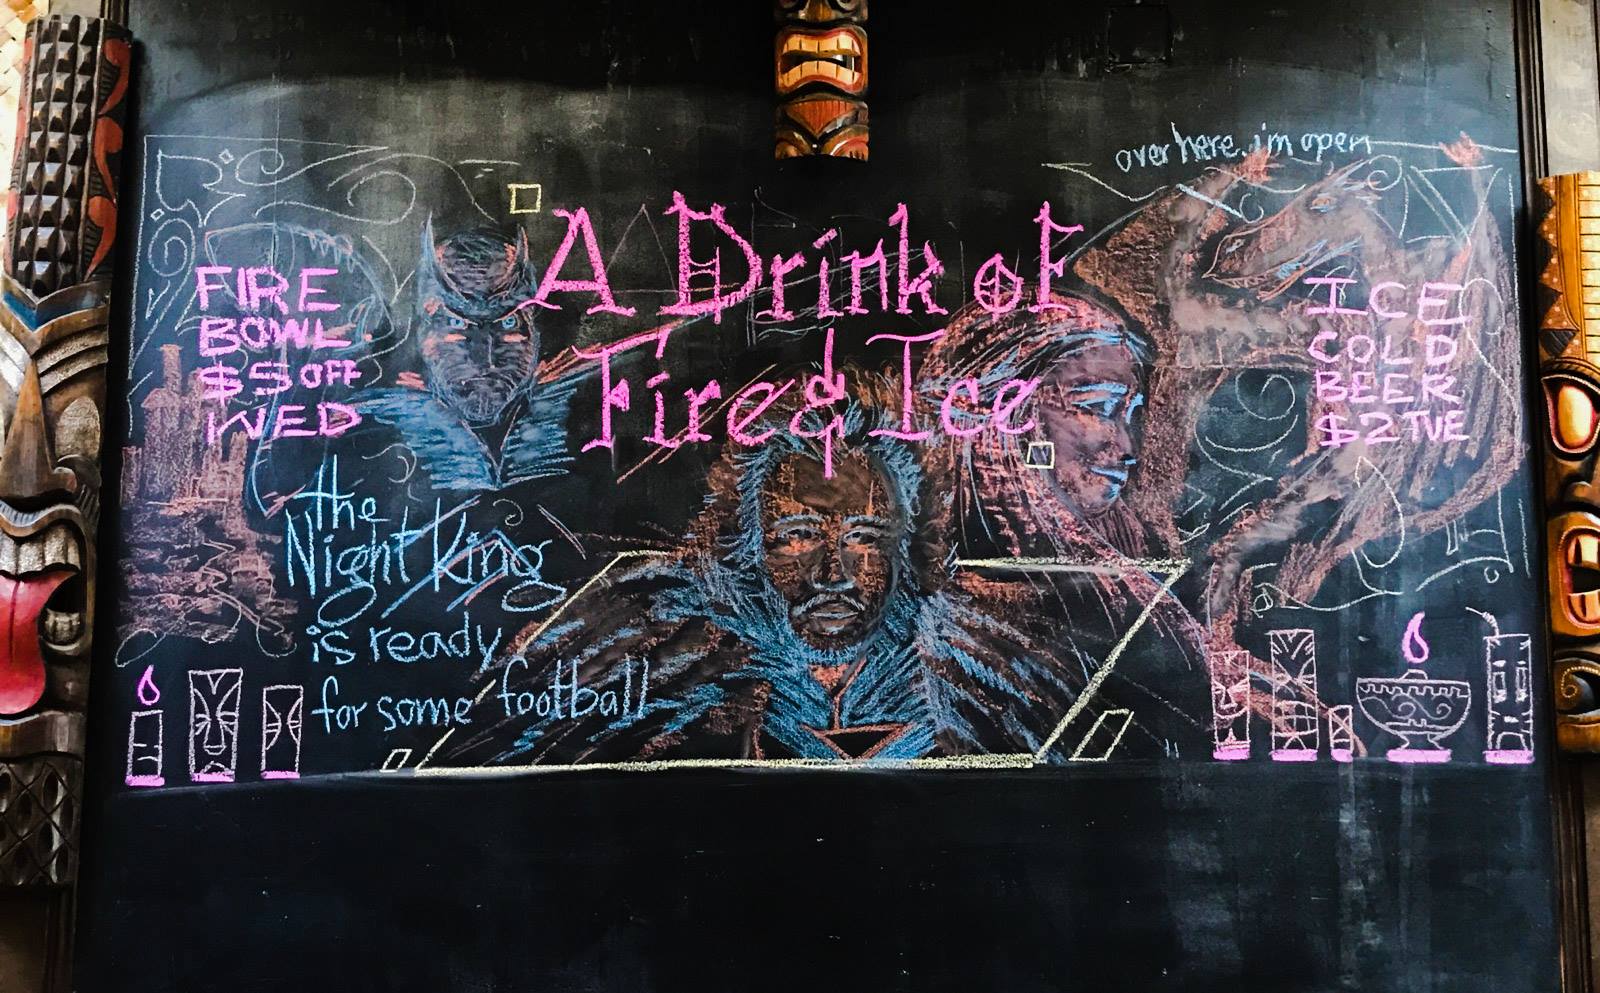 over here. i'm open
A Drink of
Fire & Ice
FIRE
BOWL
$5 OFF
WED
ICE
COLD
BEER
$2 TUE
the
Night King
is ready
for some football